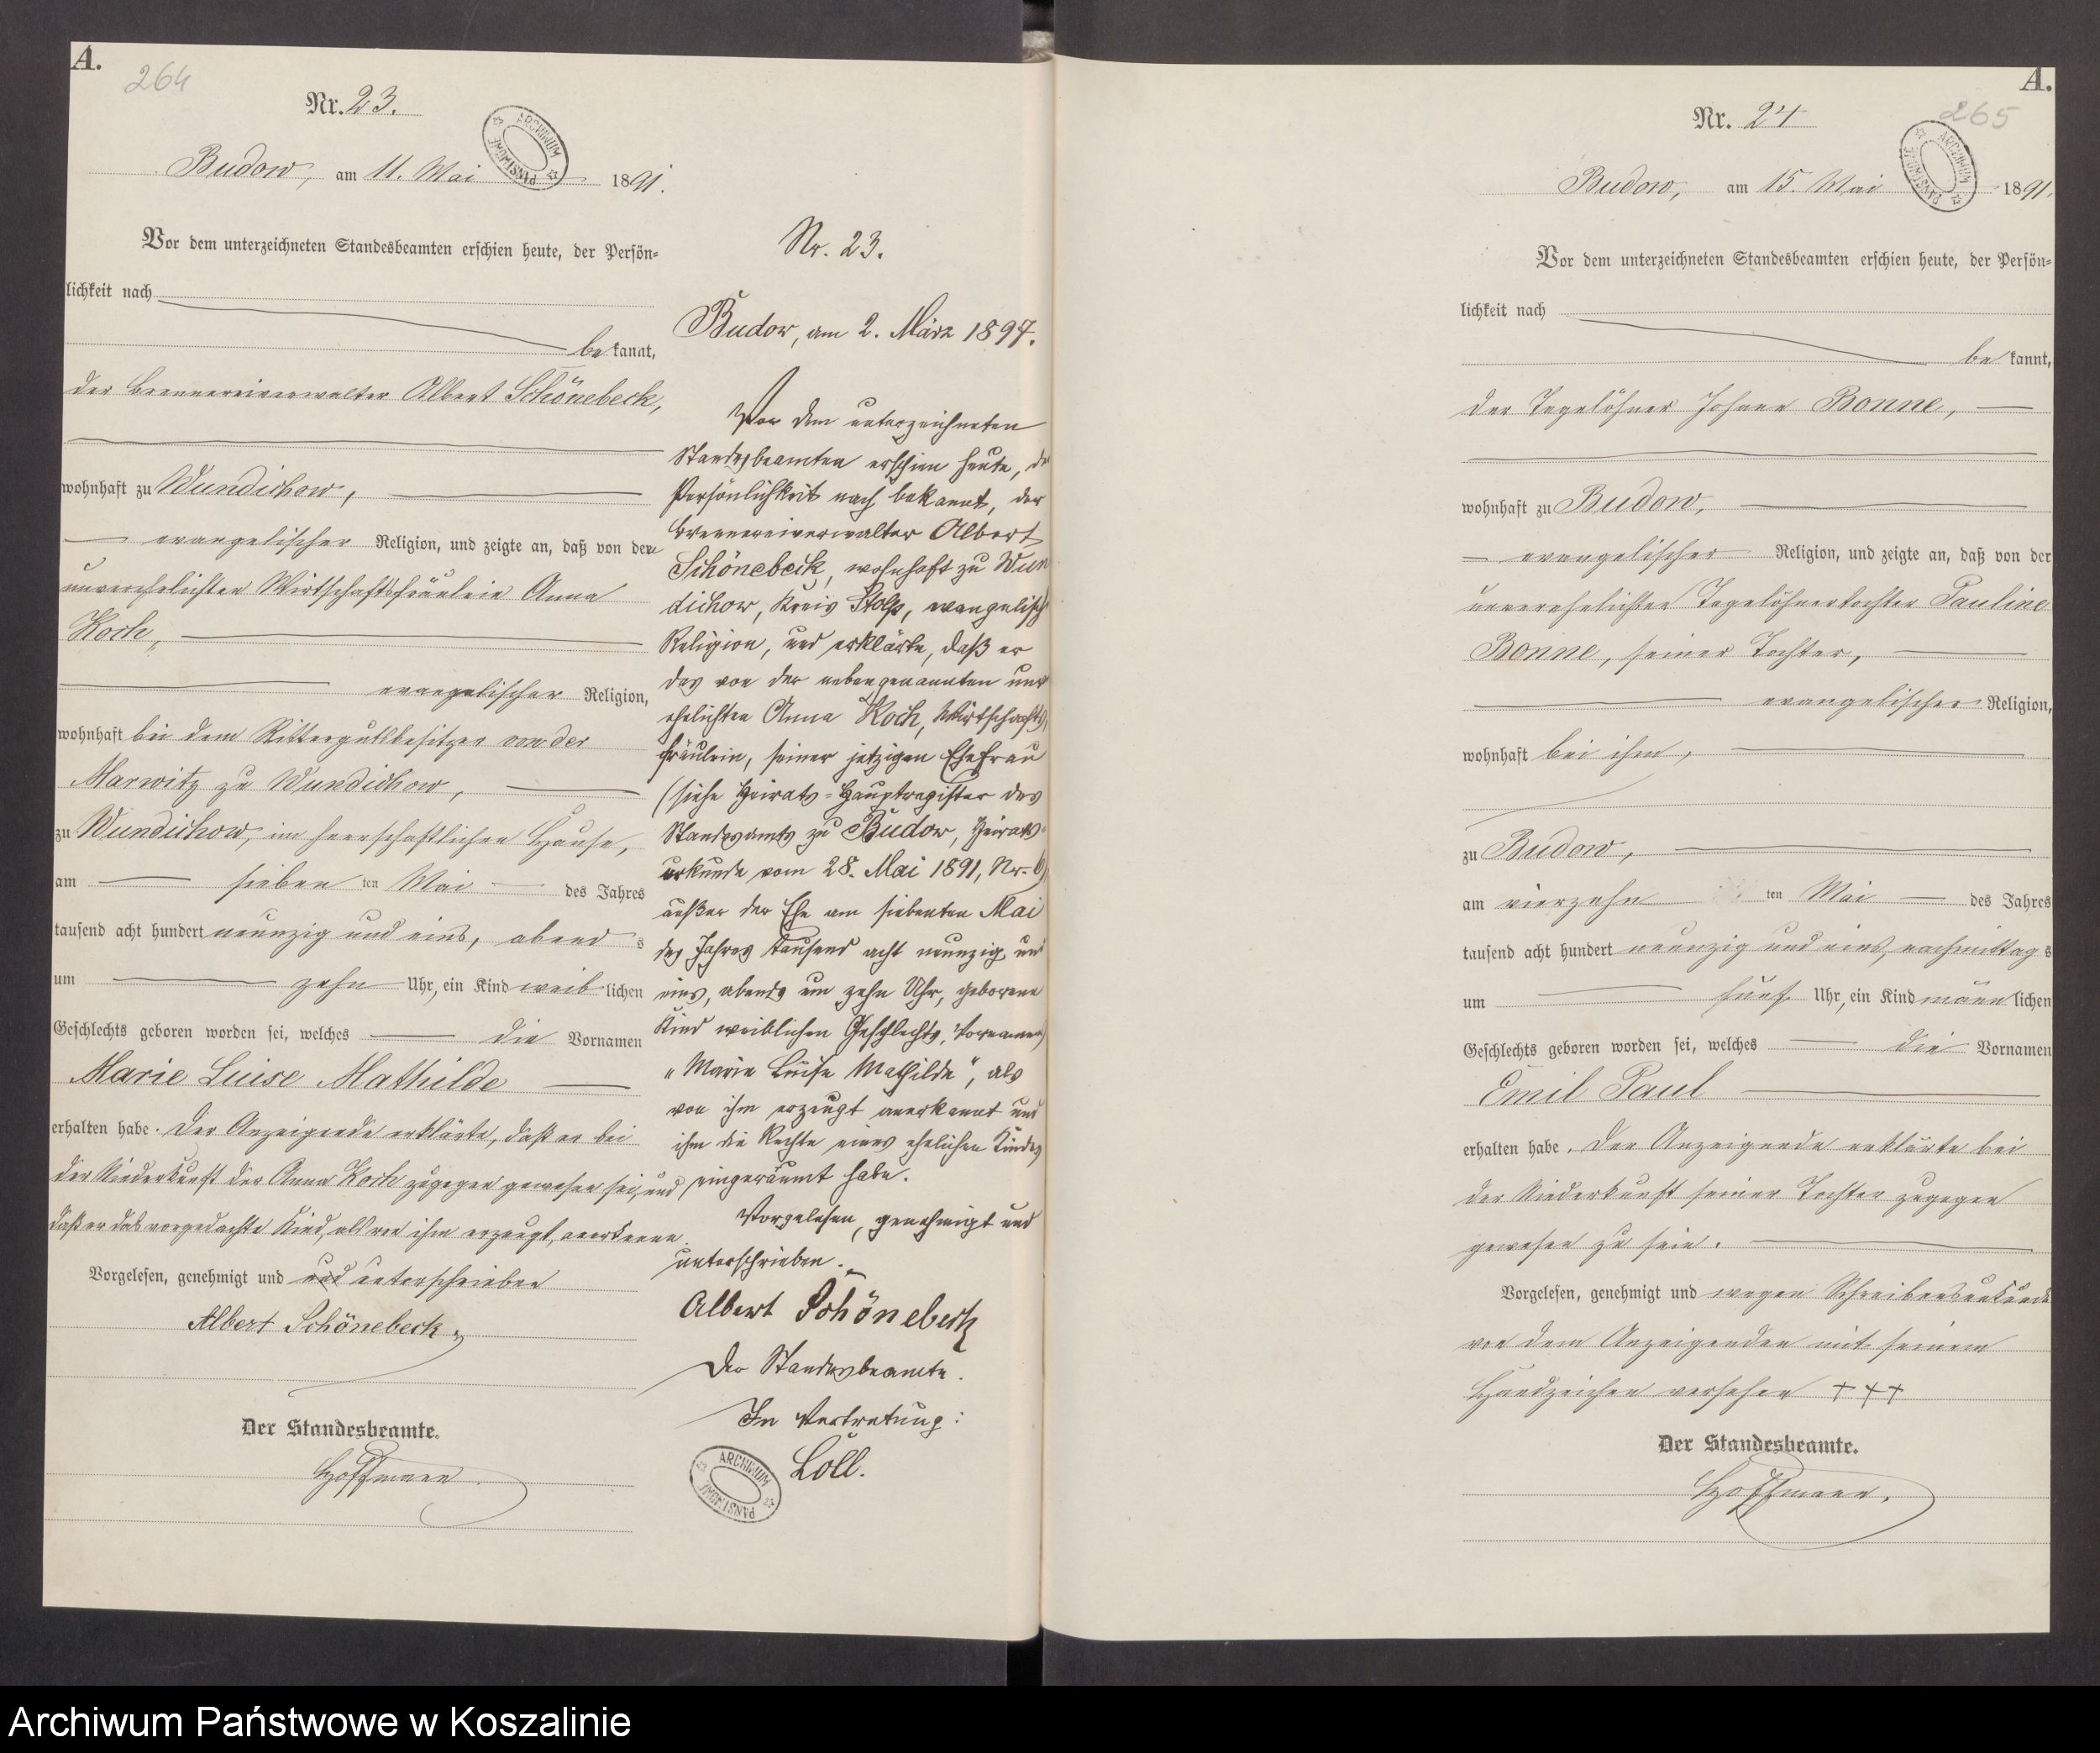 A.
264
Nr. 23.
ARCHIWUM PAŃSTWOWE
Budow, am 11. Mai 1891.
Vor dem unterzeichneten Standesbeamten erschien heute, der Persön=
lichkeit nach
be kannt,
der Brennereiverwalter Albert Schönebeck,
wohnhaft zu Wundichow,
evangelischer Religion, und zeigte an, daß von der
unverehelichten Wirtschaftsfräulein Anna
Koch,
evangelischer Religion,
wohnhaft bei dem Rittergutsbesitzer von der
Marwitz zu Wundichow,
zu Wundichow, im herrschaftlichen Hause,
am sieben ten Mai des Jahres
tausend acht hundert neunzig und eins, abend s
um zehn Uhr, ein Kind weib lichen
Geschlechts geboren worden sei, welches die Vornamen
Marie Luise Mathilde
erhalten habe. Der Anzeigende erklärte, daß er bei
der Niederkunft der Anna Koch zugegen gewesen sei, und
daß er das vorgedachte Kind, als von ihm erzeugt, anerkenne.
Vorgelesen, genehmigt und und unterschrieben
Albert Schönebeck
Der Standesbeamte.
Hoffmann
Nr. 23.
Budow, am 2. März 1897.
Vor dem unterzeichneten
Standesbeamten erschien heute, der
Persönlichkeit nach bekannt, der
Brennereiverwalter Albert
Schönebeck, wohnhaft zu Wun
dichow, Kreis Stolp, evangelisch
Religion, und erklärte, daß er
das von der nebengenannten unver
ehelichten Anna Koch, Wirtschafts
fräulein, seiner jetzigen Ehefrau
(siehe Heirats=Hauptregister des
Standesamts zu Budow, Heirats=
urkunde vom 28. Mai 1891, Nr. 6)
außer der Ehe am siebenten Mai
des Jahres tausend acht neunzig und
eins, abends um zehn Uhr, geborene
Kind weiblichen Geschlechts, Vornamen
„Marie Luise Mathilde", als
von ihm erzeugt anerkannt und
ihm die Rechte eines ehelichen Kindes
eingeräumt habe.
Vorgelesen, genehmigt und
unterschrieben.
Albert Schönebeck
Der Standesbeamte.
In Vertretung:
Löll.
ARCHIWUM PAŃSTWOWE
A.
265
Nr. 24
ARCHIWUM PAŃSTWOWE
Budow, am 15. Mai 1891.
Vor dem unterzeichneten Standesbeamten erschien heute, der Persön=
lichkeit nach
be kannt,
der Tagelöhner Johann Bonne,
wohnhaft zu Budow,
evangelischer Religion, und zeigte an, daß von der
unverehelichten Tagelöhnertochter Pauline
Bonne, seiner Tochter,
evangelischer Religion,
wohnhaft bei ihm,
zu Budow,
am vierzehn ten Mai des Jahres
tausend acht hundert neunzig und eins, nachmittag s
um fünf Uhr, ein Kind männ lichen
Geschlechts geboren worden sei, welches die Vornamen
Emil Paul
erhalten habe. Der Anzeigende erklärte bei
der Niederkunft seiner Tochter zugegen
gewesen zu sein.
Vorgelesen, genehmigt und wegen Schreibensunkunde
von dem Anzeigenden mit seinem
Handzeichen versehen + + +
Der Standesbeamte.
Hoffmann.
Archiwum Państwowe w Koszalinie